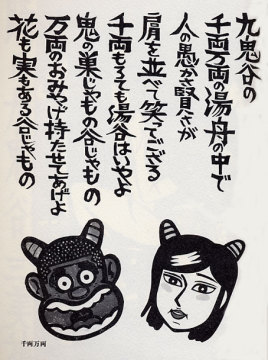 九鬼谷の
千両万両の湯舟の中で
人の愚かさ賢さが
肩を並べ笑ってござる
千両もろても湯谷はいやよ
鬼の巣じゃもの谷じゃもの
万両のおみやげ持たせてあげよ
花も実もある谷じゃもの
千両万両